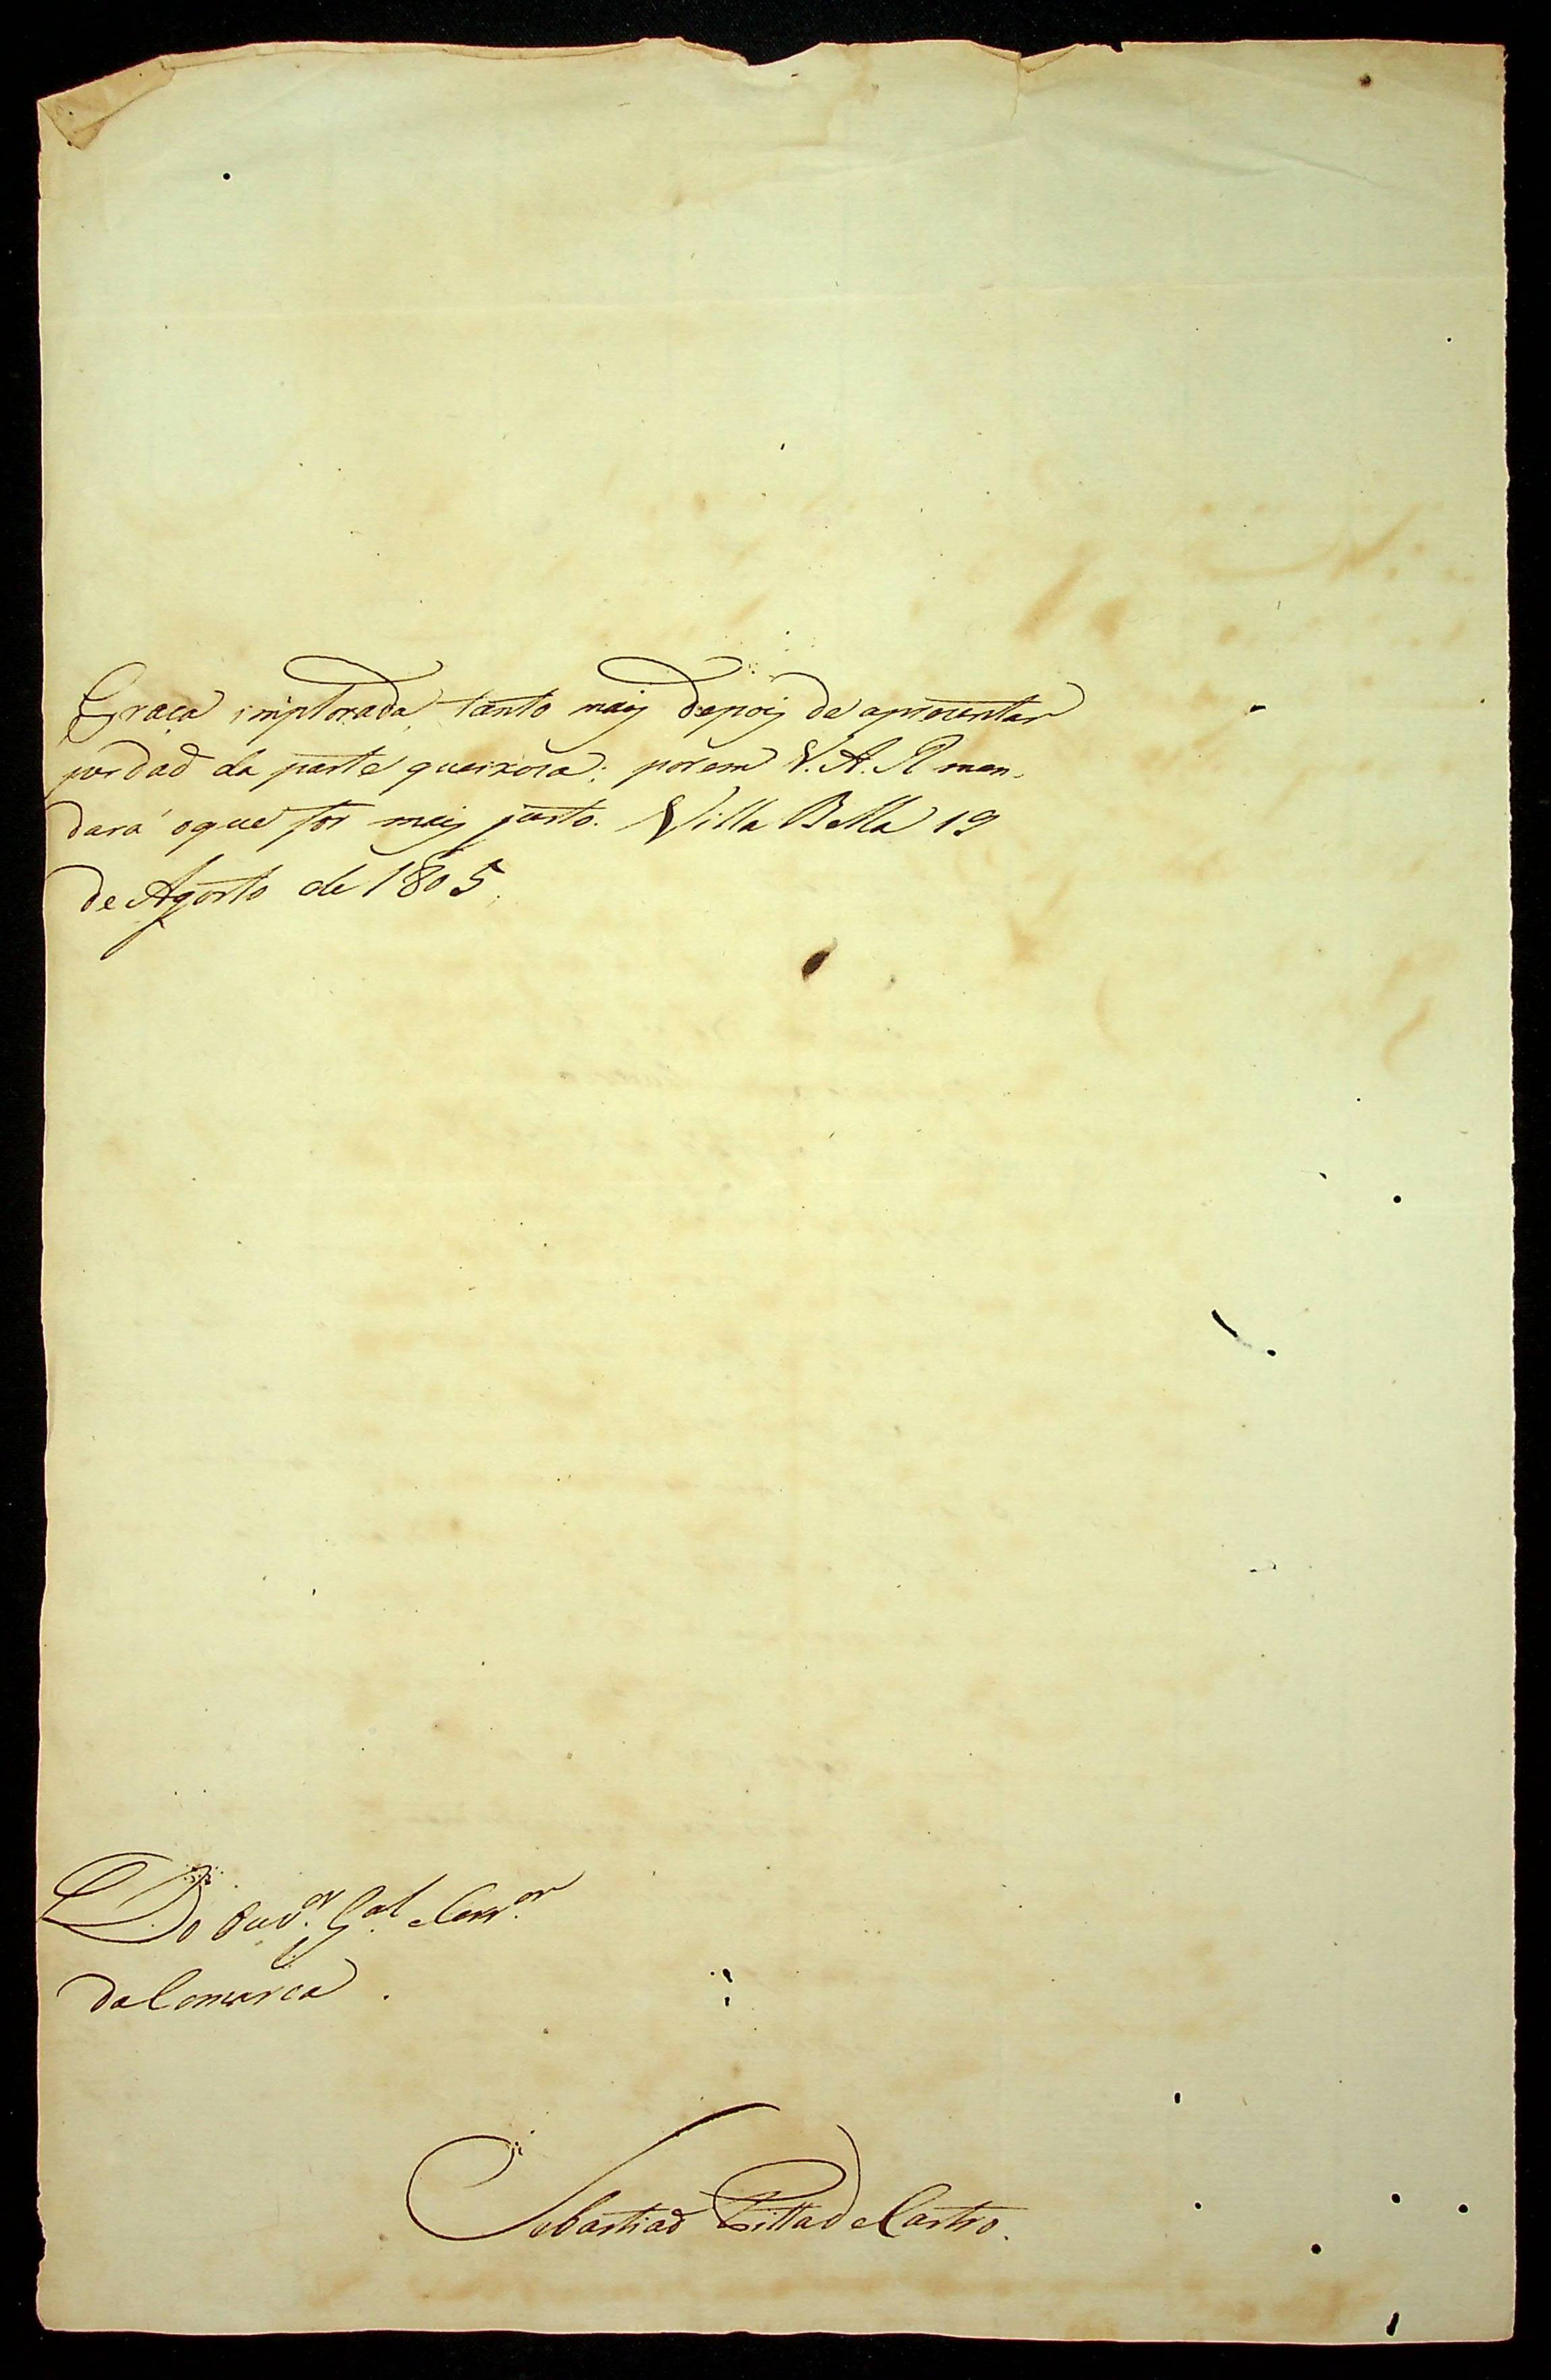 Graça implorada, tanto mais depois de aprezentar
perdaõ da parte queixoza; porem V. A. R man-
dará oque for mais justo. Villa Bella 19
de Agosto de 1805.
Do Ouv.or G.al e Corr.or
da Comarca.
Sebastiaõ Pitta de Castro.